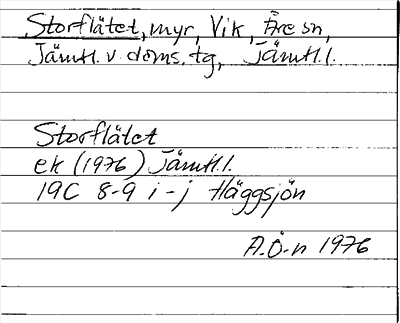 Storflätet, myr, Vik, Åre sn,
Jämtl. v. doms. tg, Jämtl. l.
Storflätet
ek (1976) Jämtl. l.
19C 8-9 i-j Häggsjön
A.Ö-n 1976